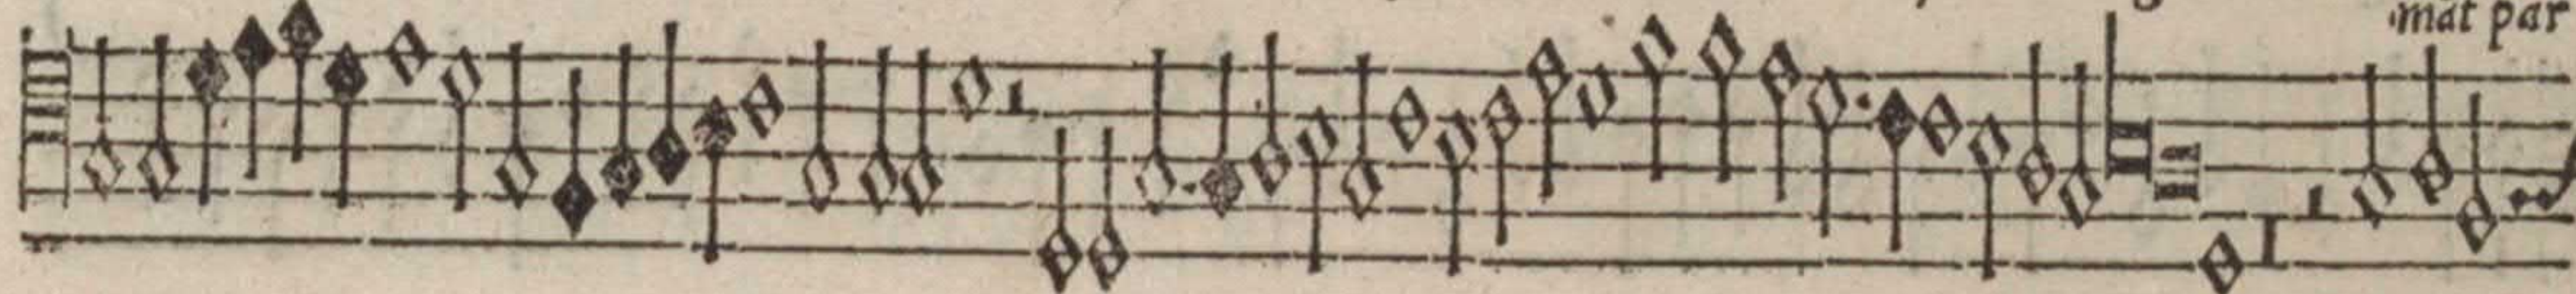 mat par